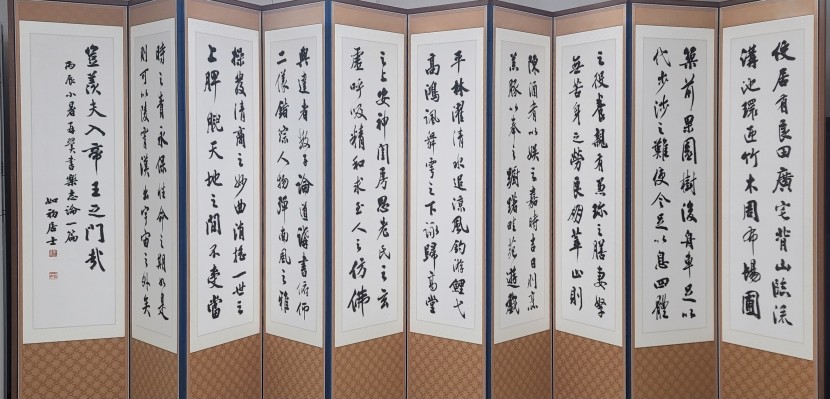 使居有良田廣宅背山臨流
溝池環匝竹木周布場圃
築前果園樹後舟車足以
代步涉之難使令足以息四體
之役養親有兼珍之膳妻孥
無苦身之勞良朋萃止則
陳酒肴以娛之嘉時吉日則烹
羔豚以奉之躊躇畦苑遊戲
平林濯清水追涼風釣游鯉弋
高鴻諷舞雩之下詠歸高堂
之上安神閨房思老氏之玄
虛呼吸精和求至人之仿佛
與達者數子論道講書俯仰
二儀錯綜人物彈南風之雅
操發清商之妙曲消搖一世之
上睥睨天地之間不受當
時之責永保性命之期如是
則可以陵霄漢出宇宙之外矣
豈羨夫入帝王之門哉
丙辰小暑 書樂志論一篇
如初居士